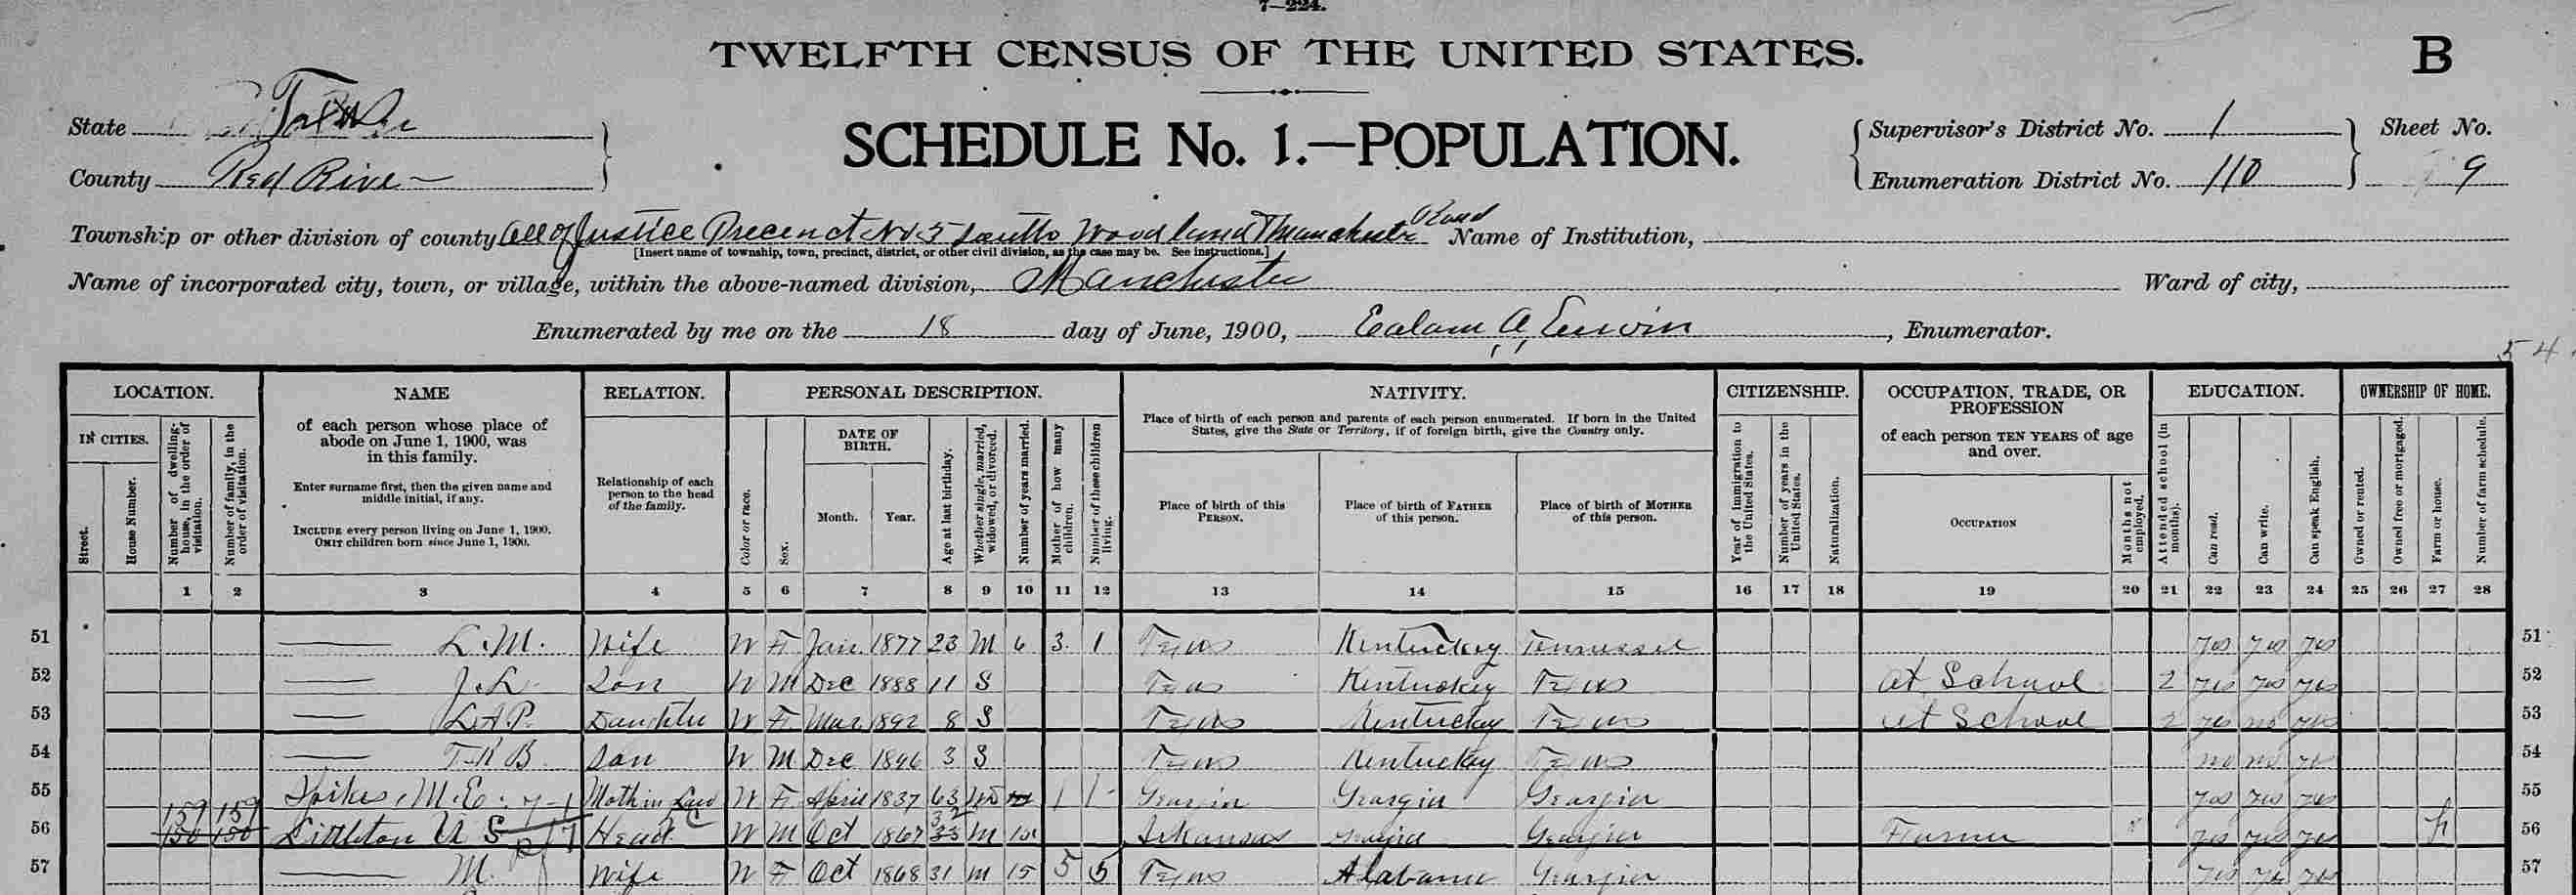 7—224.
TWELFTH CENSUS OF THE UNITED STATES.
B
State
County Red River
SCHEDULE No. 1.—POPULATION.
Supervisor's District No. 1
Enumeration District No. 110
Sheet No.
9
Township or other division of county All of Justice Precinct No 5 South Woodland & Manchester Road
Name of Institution,
[Insert name of township, town, precinct, district, or other civil division, as the case may be. See instructions.]
Name of incorporated city, town, or village, within the above-named division, Manchester
Ward of city,
Enumerated by me on the 18 day of June, 1900, Ealam A. Erwin, Enumerator.
54
LOCATION.
IN CITIES.
Street.
House Number.
Number of dwelling-house, in the order of visitation.
Number of family, in the order of visitation.
NAME
of each person whose place of
abode on June 1, 1900, was
in this family.
Enter surname first, then the given name and
middle initial, if any.
INCLUDE every person living on June 1, 1900.
OMIT children born since June 1, 1900.
RELATION.
Relationship of each
person to the head
of the family.
PERSONAL DESCRIPTION.
Color or race.
Sex.
DATE OF
BIRTH.
Month.
Year.
Age at last birthday.
Whether single, married, widowed, or divorced.
Number of years married.
Mother of how many children.
Number of these children living.
NATIVITY.
Place of birth of each person and parents of each person enumerated. If born in the United
States, give the State or Territory, if of foreign birth, give the Country only.
Place of birth of this
PERSON.
Place of birth of FATHER
of this person.
Place of birth of MOTHER
of this person.
CITIZENSHIP.
Year of immigration to the United States.
Number of years in the United States.
Naturalization.
OCCUPATION, TRADE, OR
PROFESSION
of each person TEN YEARS of age
and over.
OCCUPATION
Months not employed.
EDUCATION.
Attended school (in months).
Can read.
Can write.
Can speak English.
OWNERSHIP OF HOME.
Owned or rented.
Owned free or mortgaged.
Farm or house.
Number of farm schedule.
1 2 3 4 5 6 7 8 9 10 11 12 13 14 15 16 17 18 19 20 21 22 23 24 25 26 27 28
51 L. M. Wife W F Jan. 1877 23 M 6 3 1 Texas Kentucky Tennessee yes yes yes 51
52 J. L. Son W M Dec 1888 11 S Texas Kentucky Texas at School 2 yes yes yes 52
53 L A P. Daughter W F Mar. 1892 8 S Texas Kentucky Texas at School 2 yes no yes 53
54 T R B Son W M Dec 1896 3 S Texas Kentucky Texas no no yes 54
55 Spikes, M. E. Mother in Law W F April 1837 63 Wd 1 1 Georgia Georgia Georgia yes yes yes 55
159 159
56 150 150 Littleton U S Head W M Oct 1867 32 33 M 15 Arkansas Georgia Georgia Farmer yes yes yes h 56
57 M. Wife W F Oct 1868 31 M 15 5 5 Texas Alabama Georgia yes yes yes 57